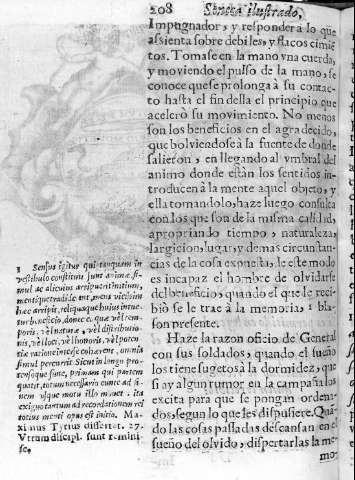 208 Seneca ilustrado,
Impugnador, y responder a lo que
assienta sobre debiles, y flacos cimiē
tos. Tomase en la mano vna cuerda,
y moviendo el pulso de la mano, se
conoce que se prolonga à su contac-
to hasta el fin della el principio que
acelerò su movimiento. No menos
son los beneficios en el agradecido,
que bolviendose à la fuente de donde
salieron, en llegando al vmbral del
animo donde estàn los sentidos in-
troducen à la mente aquel objeto, y
ella tomandolo, haze luego consulta
con los que son de la misma calidad,
apropriando tiempo, naturaleza,
largicion, lugar, y demas circunstan-
cias de la cosa expuesta, de este modo
es incapaz el hombre de olvidarse
del beneficio, quando el que le reci-
biò se le trae à la memoria, 1 bla-
son presente.
Haze la razon oficio de General
con sus soldados, quando el sueño
los tiene sugetos à la dormidez, que
si ay algun rumor en la campaña los
excita para que se pongan ordena-
dos, segun lo que les dispusiere. Quā
do las cosas passadas descansan en el
sueño del olvido, dispertarlas la me-
mo-
1 Sensus igitur qui tanquam in
vestibulo constituti sunt animæ, si-
mul ac alicuius arripuerit initium,
mentique tradiderint, mens vicissim
hæc arripit, reliquaque huius intue-
tur beneficio, donec ea, quæ vel tem-
poris, vel naturæ, vel distributio-
nis, vel loci, vel honoris, vel poten-
tiæ ratione inter se cohærent, omnia
simul percurrit. Sicut in longa pro-
tensaque fune, primam qui partem
quatit, totum necessario cunctæ ad fi-
nem usque motu illo movet. ita
exiguo tantum ad recordationem rei
totius menti opus est initio. Ma-
ximus Tyrius dissertat. 27.
Vtrum discipl. sunt remini-
sc.